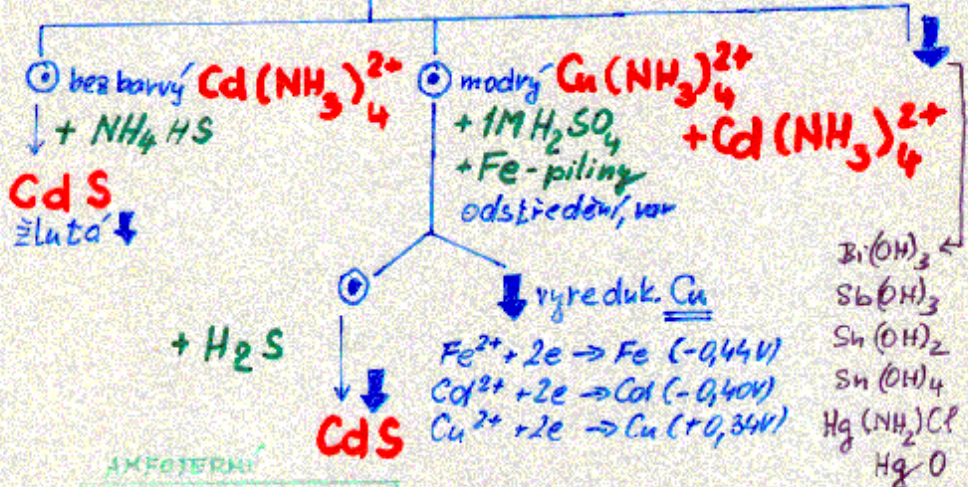 bezbarvý Cd(NH₃)₄²⁺
+ NH₄HS
CdS
žlutá
modrý Cu(NH₃)₄²⁺
+ Cd(NH₃)₄²⁺
+ 1M H₂SO₄
+ Fe-piliny
odstředění, var
+ H₂S
CdS
vyreduk. Cu
Fe²⁺ + 2e → Fe (-0,44V)
Cd²⁺ + 2e → Cd (-0,40V)
Cu²⁺ + 2e → Cu (+0,34V)
Bi(OH)₃
Sb(OH)₃
Sn(OH)₂
Sn(OH)₄
Hg(NH₂)Cl
HgO
AMFOTERNÍ